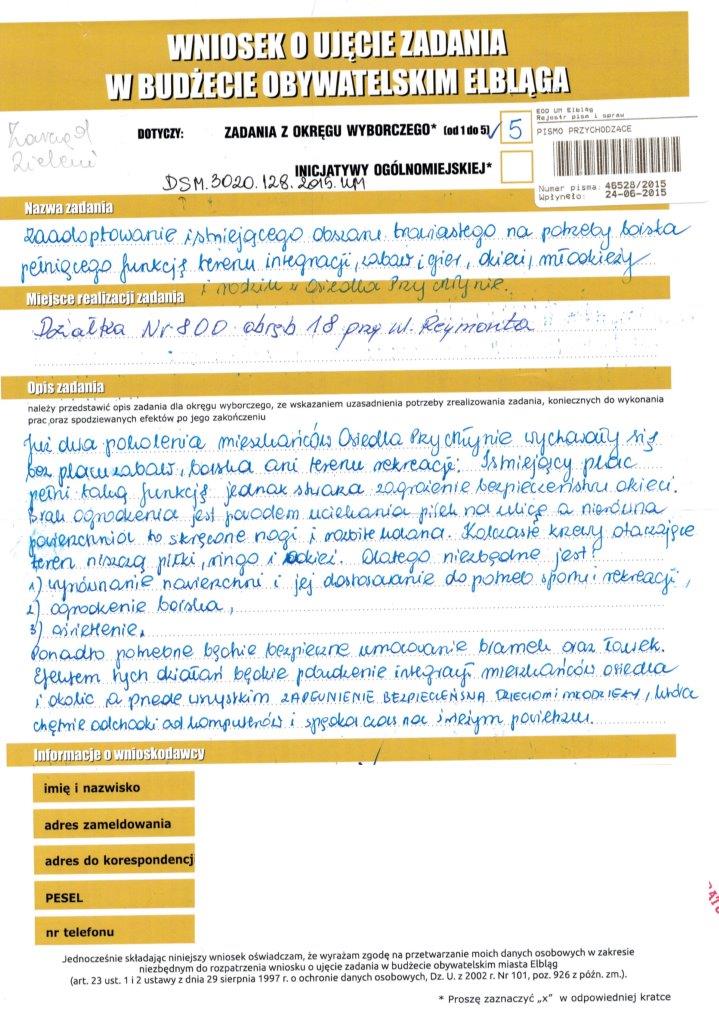 WNIOSEK O UJĘCIE ZADANIA
W BUDŻECIE OBYWATELSKIM ELBLĄGA
Zarząd
Zieleni
DOTYCZY: ZADANIA Z OKRĘGU WYBORCZEGO* (od 1 do 5) 5
EOD UM Elbląg
Rejestr pism i spraw
PISMO PRZYCHODZĄCE
INICJATYWY OGÓLNOMIEJSKIEJ*
Numer pisma: 46528/2015
Wpłynęło: 24-06-2015
DSM.3020.128.2015.UM
Nazwa zadania
Zaadoptowanie istniejącego obszaru trawiastego na potrzeby boiska
pełniącego funkcję terenu integracji, zabaw i gier, dzieci, młodzieży
i rodzin z Osiedla Przy Młynie.
Miejsce realizacji zadania
Działka Nr 800 obręb 18 przy ul. Reymonta
Opis zadania
należy przedstawić opis zadania dla okręgu wyborczego, ze wskazaniem uzasadnienia potrzeby zrealizowania zadania, koniecznych do wykonania
prac oraz spodziewanych efektów po jego zakończeniu
Już dwa pokolenia mieszkańców Osiedla Przy Młynie wychowały się
bez placu zabaw, boiska ani terenu rekreacji. Istniejący plac
pełni taką funkcję jednak stwarza zagrożenie bezpieczeństwu dzieci.
Brak ogrodzenia jest powodem uciekania piłek na ulicę a nierówna
powierzchnia to skręcone nogi i rozbite kolana. Kolczaste krzewy otaczające
teren niszczą piłki, ringo i odzież. Dlatego niezbędne jest:
1) wyrównanie nawierzchni i jej dostosowanie do potrzeb sportu i rekreacji,
2) ogrodzenie boiska,
3) oświetlenie.
Ponadto potrzebne będzie bezpieczne umocowanie bramek oraz ławek.
Efektem tych działań będzie pobudzenie integracji mieszkańców osiedla
i okolic a przede wszystkim ZAPEWNIENIE BEZPIECZEŃSTWA DZIECIOM I MŁODZIEŻY, która
chętnie odchodzi od komputerów i spędza czas na świeżym powietrzu.
Informacje o wnioskodawcy
imię i nazwisko
adres zameldowania
adres do korespondencj
PESEL
nr telefonu
Jednocześnie składając niniejszy wniosek oświadczam, że wyrażam zgodę na przetwarzanie moich danych osobowych w zakresie
niezbędnym do rozpatrzenia wniosku o ujęcie zadania w budżecie obywatelskim miasta Elbląg
(art. 23 ust. 1 i 2 ustawy z dnia 29 sierpnia 1997 r. o ochronie danych osobowych, Dz. U. z 2002 r. Nr 101, poz. 926 z późn. zm.).
* Proszę zaznaczyć „x” w odpowiedniej kratce